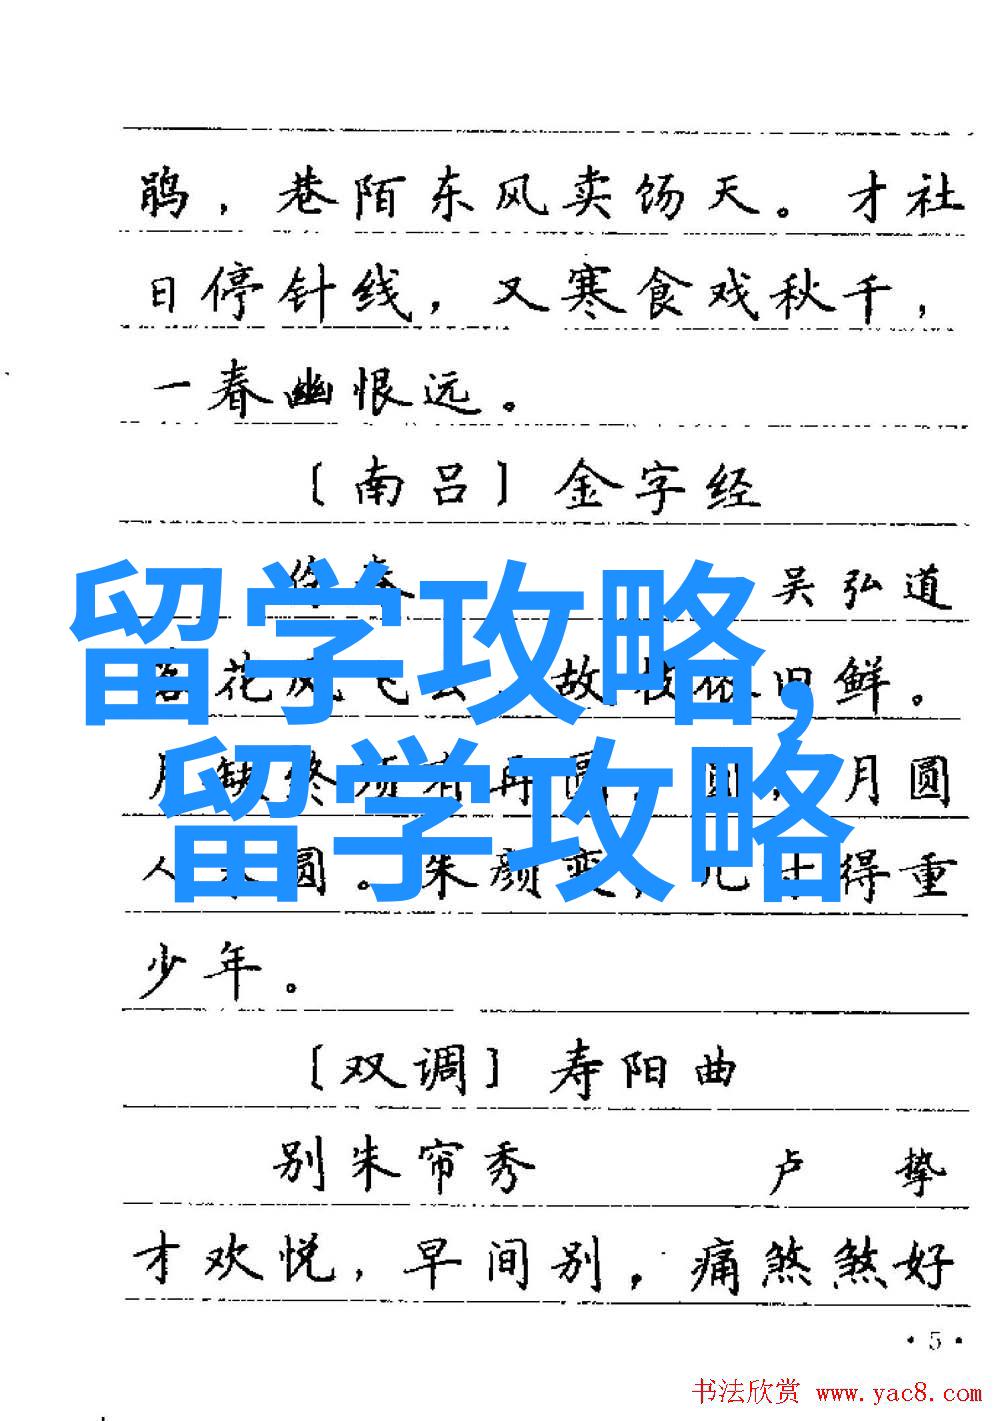 鹃，巷陌东风卖饧天。才社
日停针线，又寒食戏秋千，
一春幽恨远。
〔南吕〕金字经
春 吴弘道
留学攻略,
花风飞去，故枝依旧鲜。
月缺终须有再圆，圆，月圆
留学攻略
人未圆。朱颜变，几时得重
少年。
〔双调〕寿阳曲
别朱帘秀 卢挚
才欢悦，早间别，痛煞煞好
·5·
书法欣赏 www.yac8.com